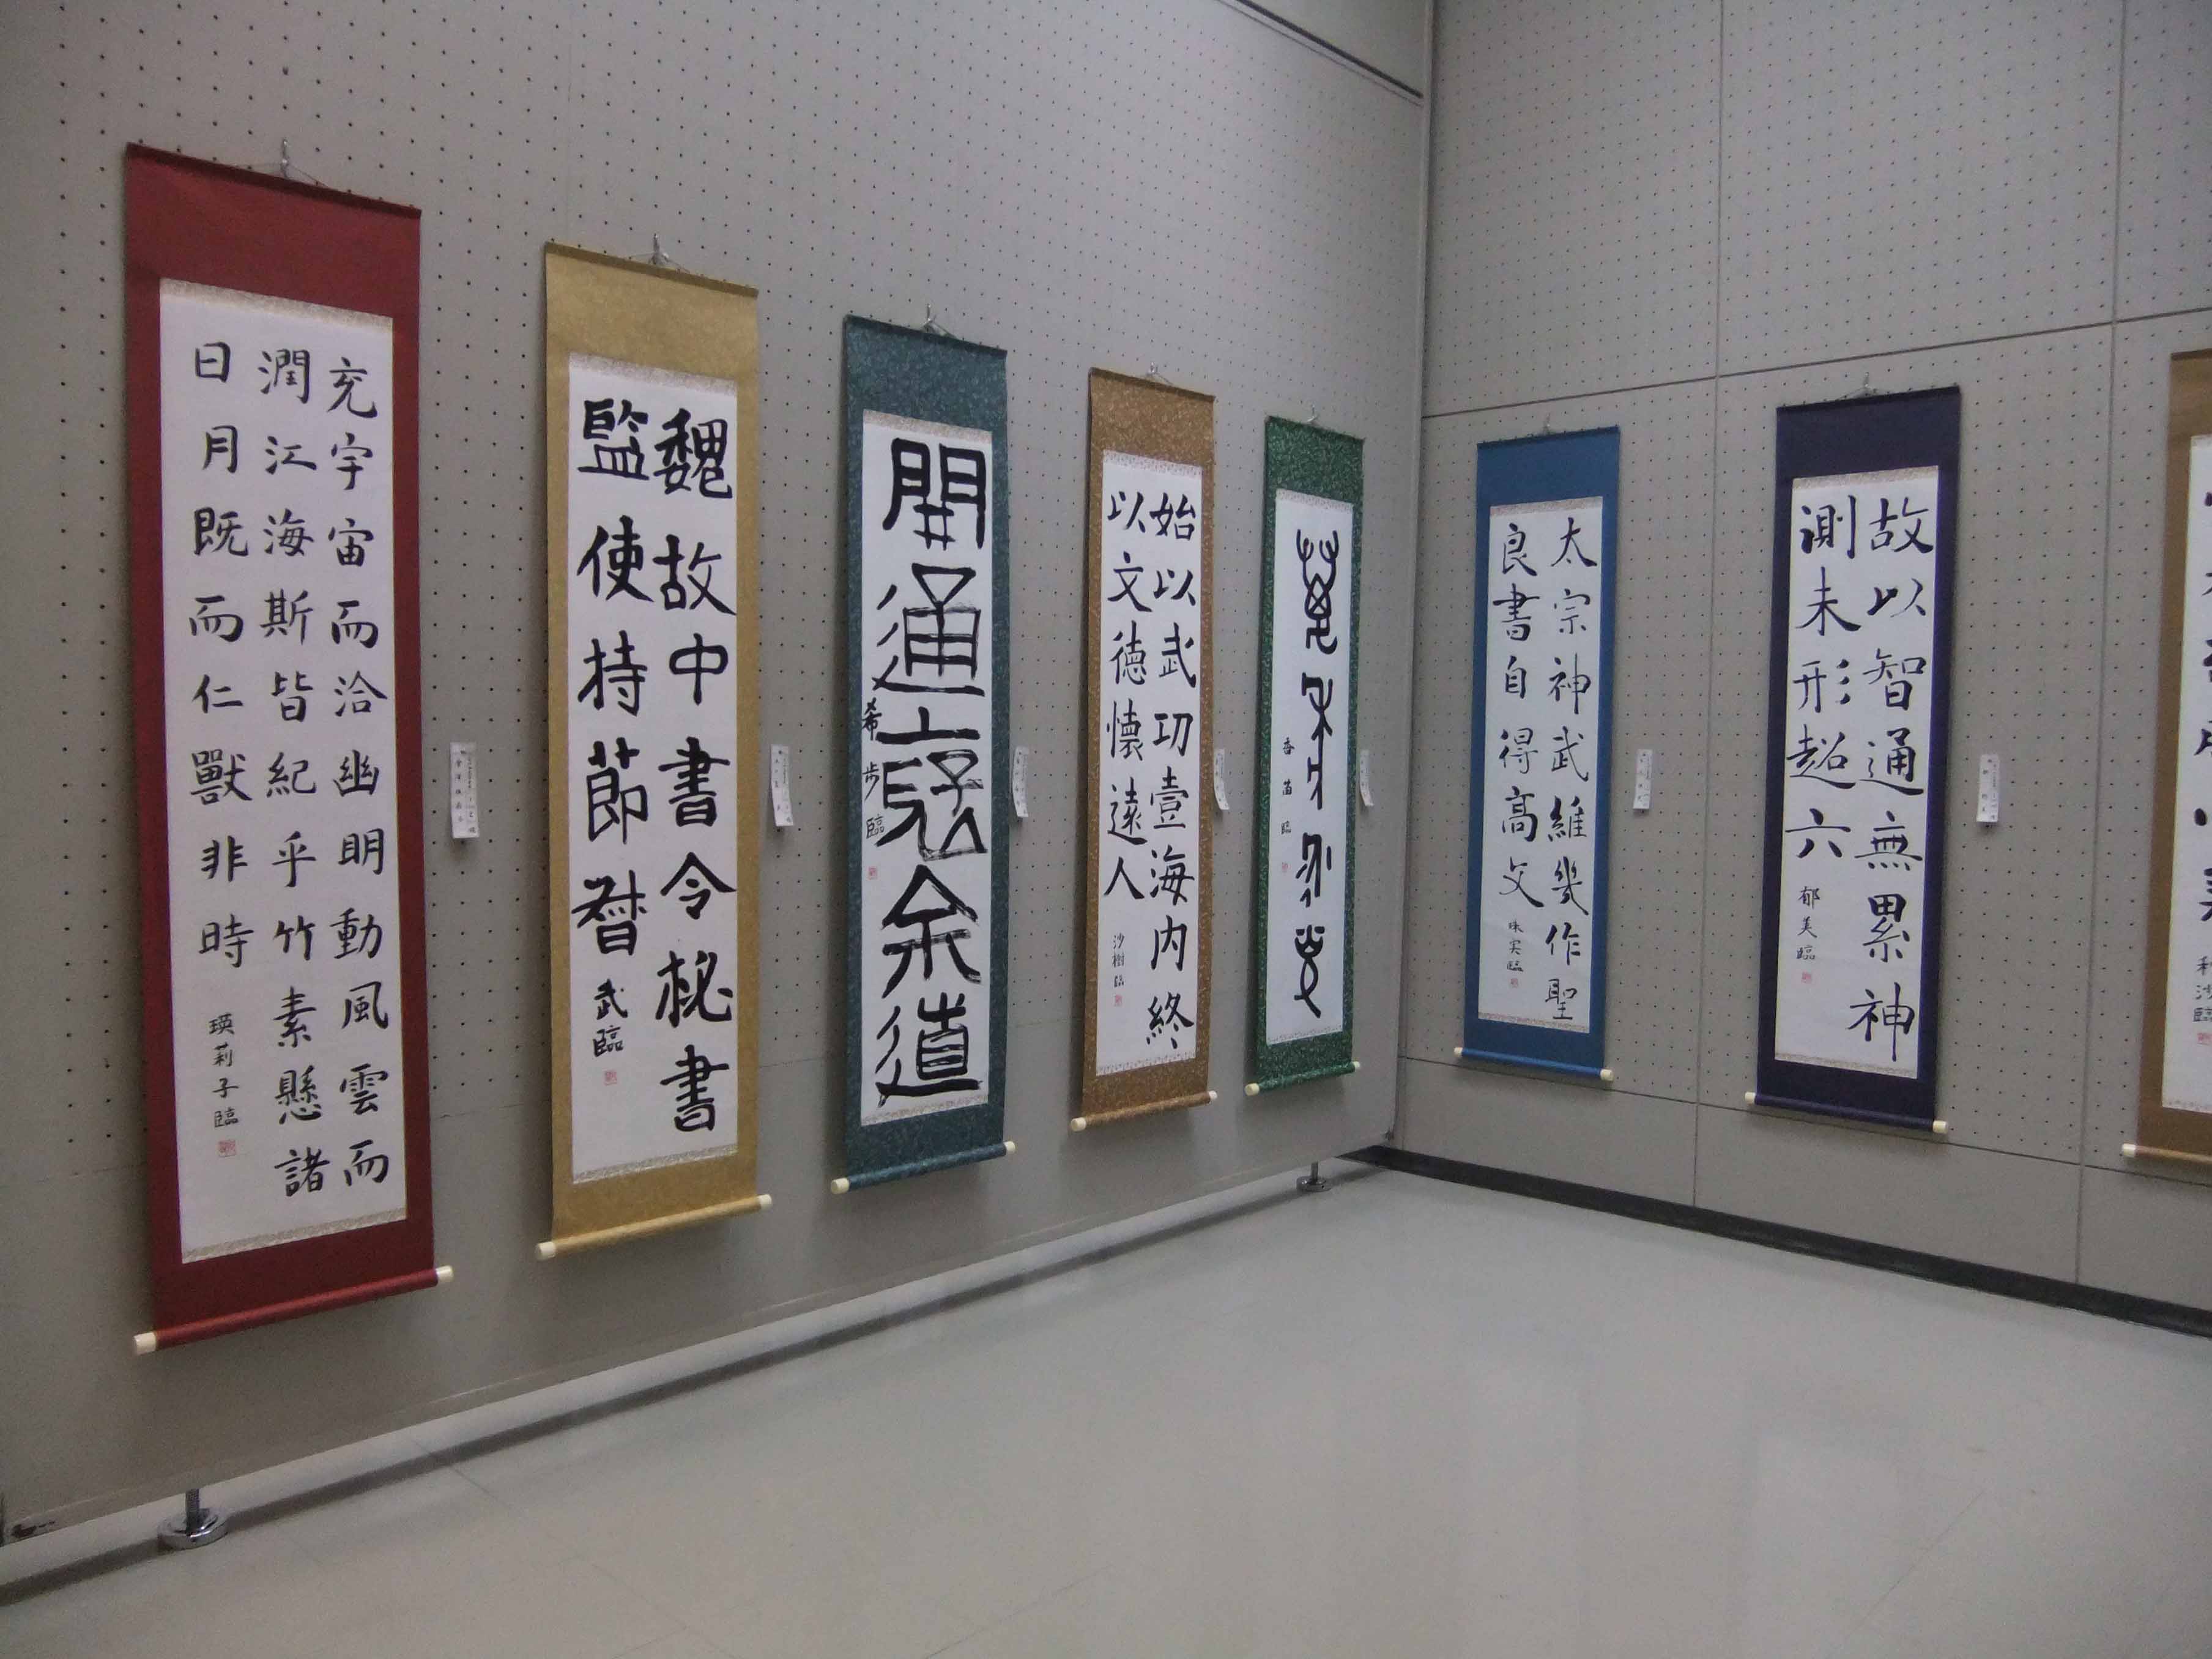 充宇宙而洽幽明動風雲而
潤江海斯皆紀乎竹素懸諸
日月既而仁獸非時
瑛莉子臨
魏故中書令秘書
監使持節督
武臨
開通褒余道
希歩臨
始以武功壹海内終
以文德懷遠人
沙樹臨
香苗臨
太宗神武維幾作聖
良書自得高文
故以智通無累神
測未形超六
郁美臨